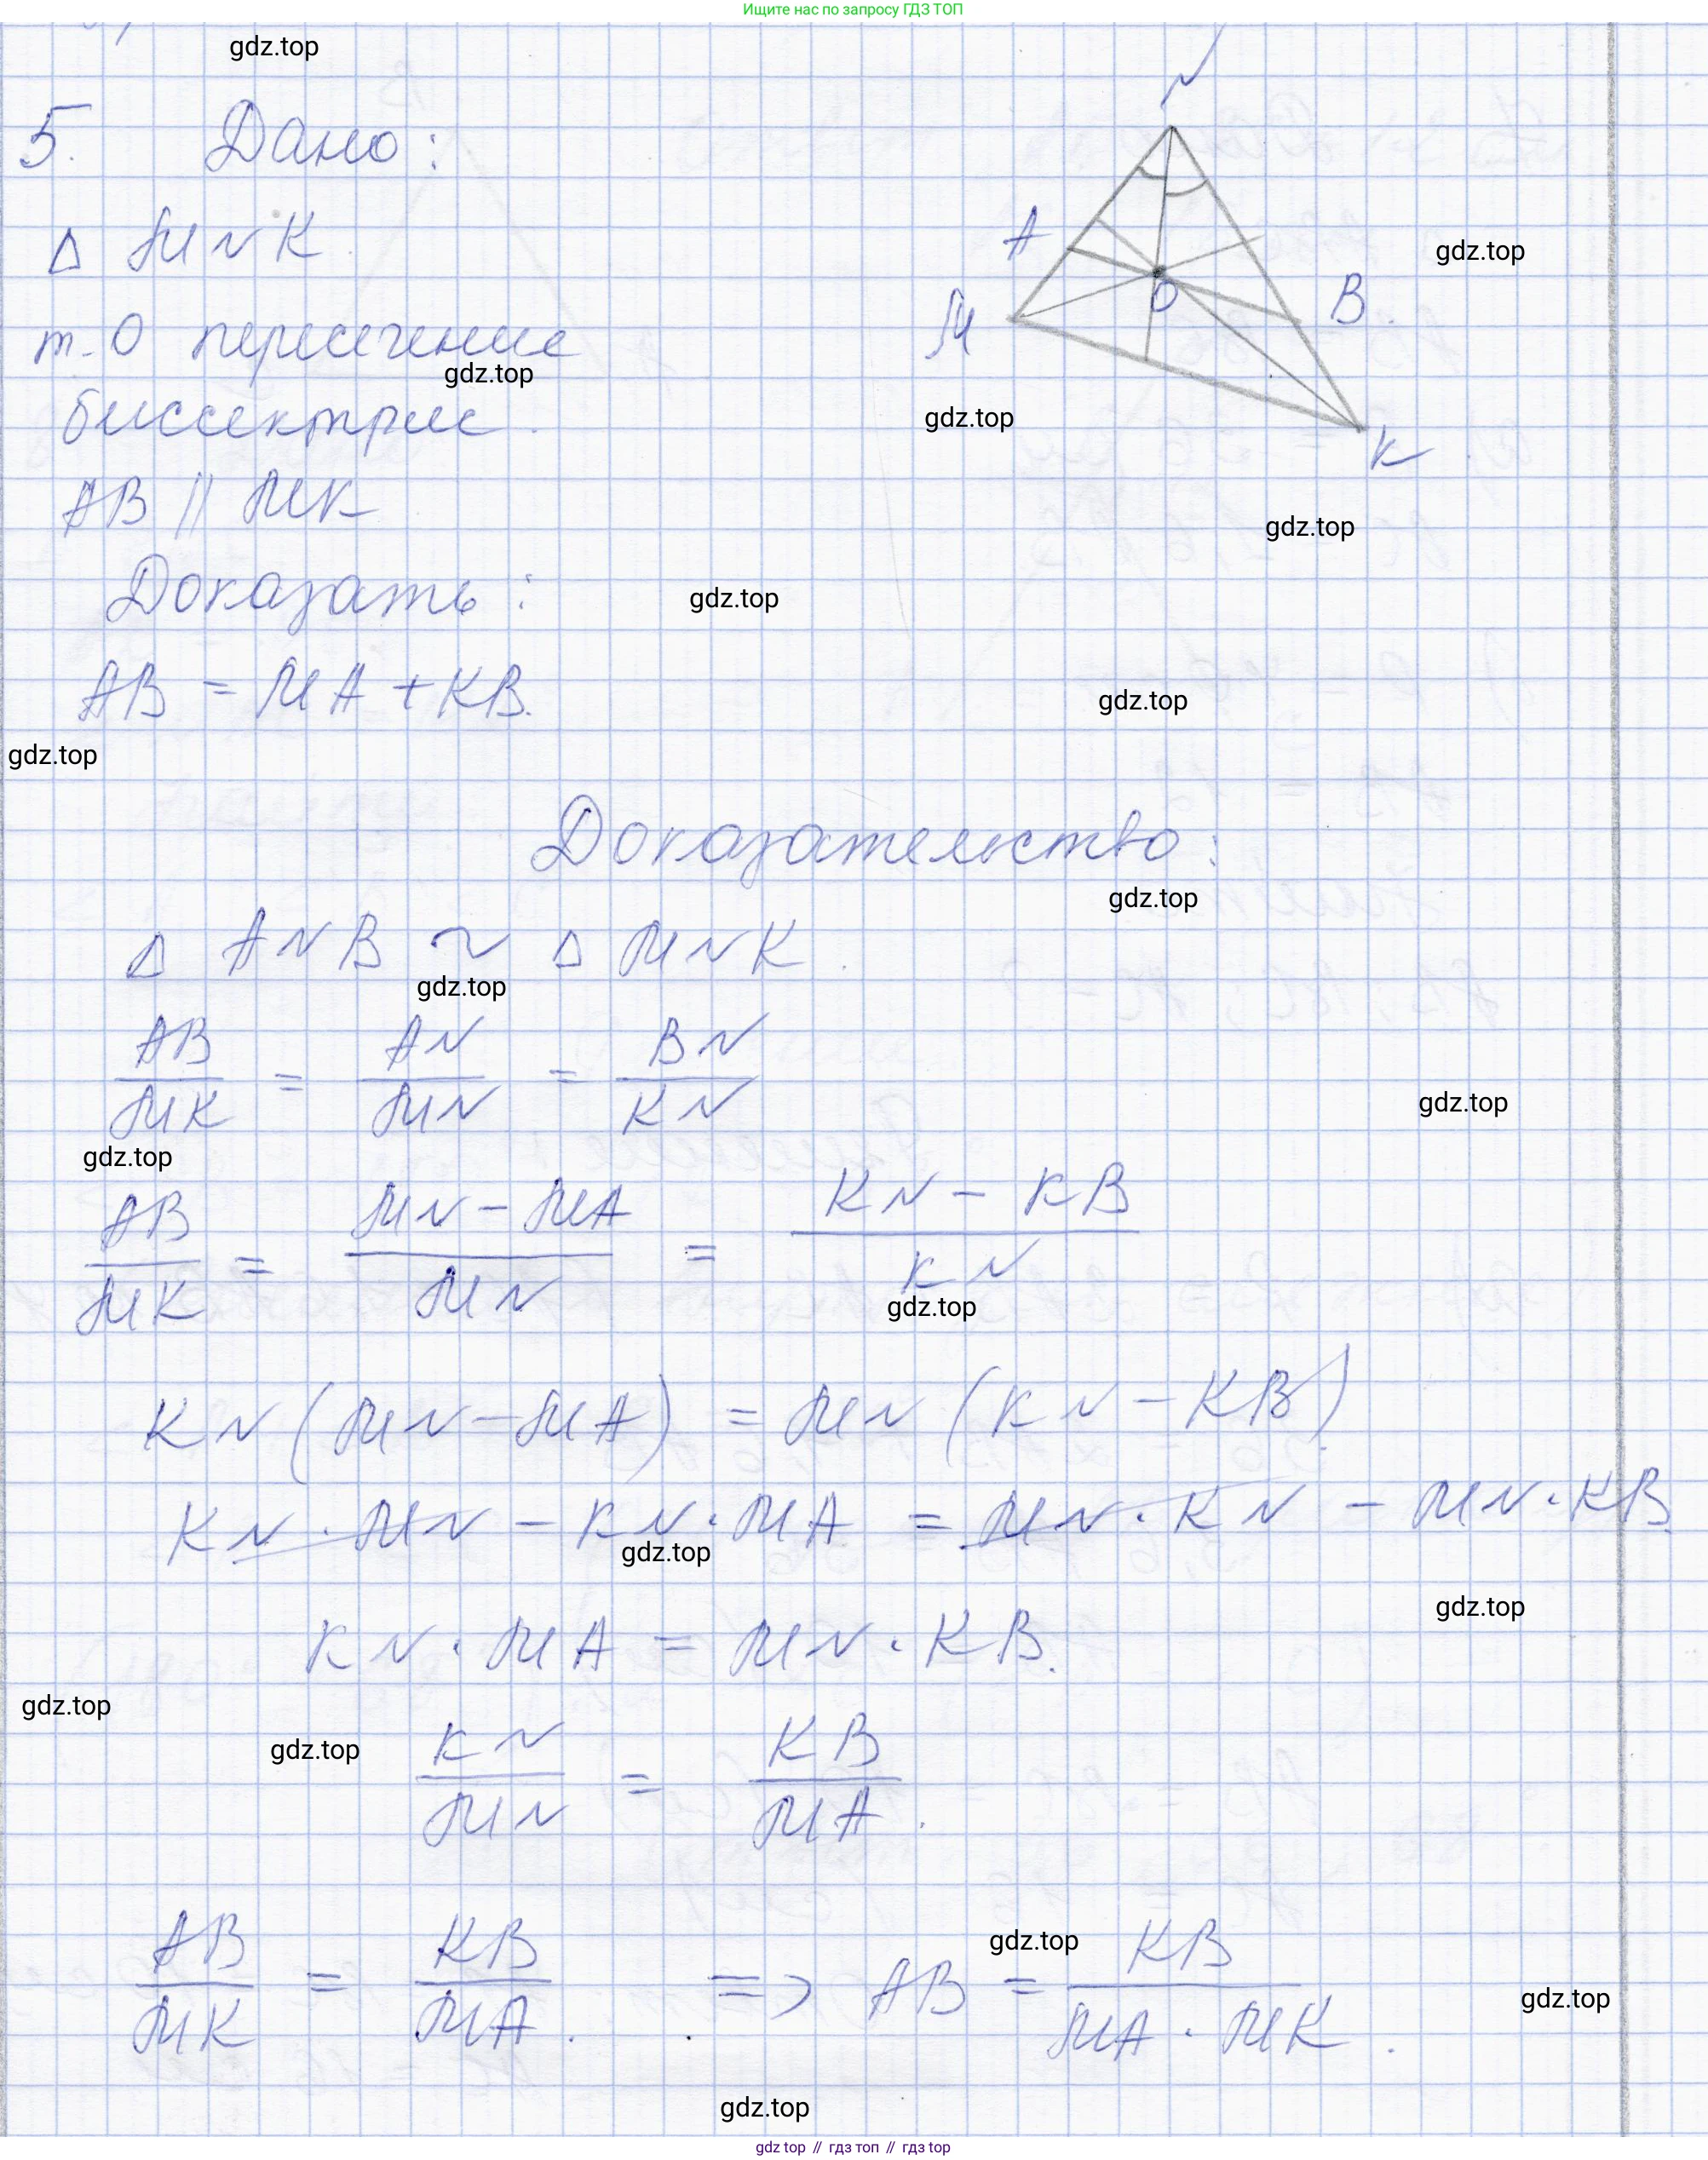 Ищите нас по запросу ГДЗ ТОП
gdz.top
5. Дано:
N
△ MNK
A
gdz.top
т. O пересечение
M
O
B.
gdz.top
биссектрис.
gdz.top
K
AB || MK
gdz.top
Доказать:
gdz.top
AB = MA + KB.
gdz.top
gdz.top
Доказательство:
gdz.top
△ ANB ~ △ MNK.
gdz.top
AB/MK = AN/MN = BN/KN
gdz.top
gdz.top
AB/MK = MN - MA/MN = KN - KB/KN
gdz.top
KN (MN - MA) = MN (KN - KB)
KN · MN - KN · MA = MN · KN - MN · KB
gdz.top
gdz.top
KN · MA = MN · KB.
gdz.top
gdz.top
KN/MN = KB/MA.
gdz.top
AB/MK = KB/MA. => AB = KB/MA · MK.
gdz.top
gdz.top
gdz top // гдз топ // гдз top